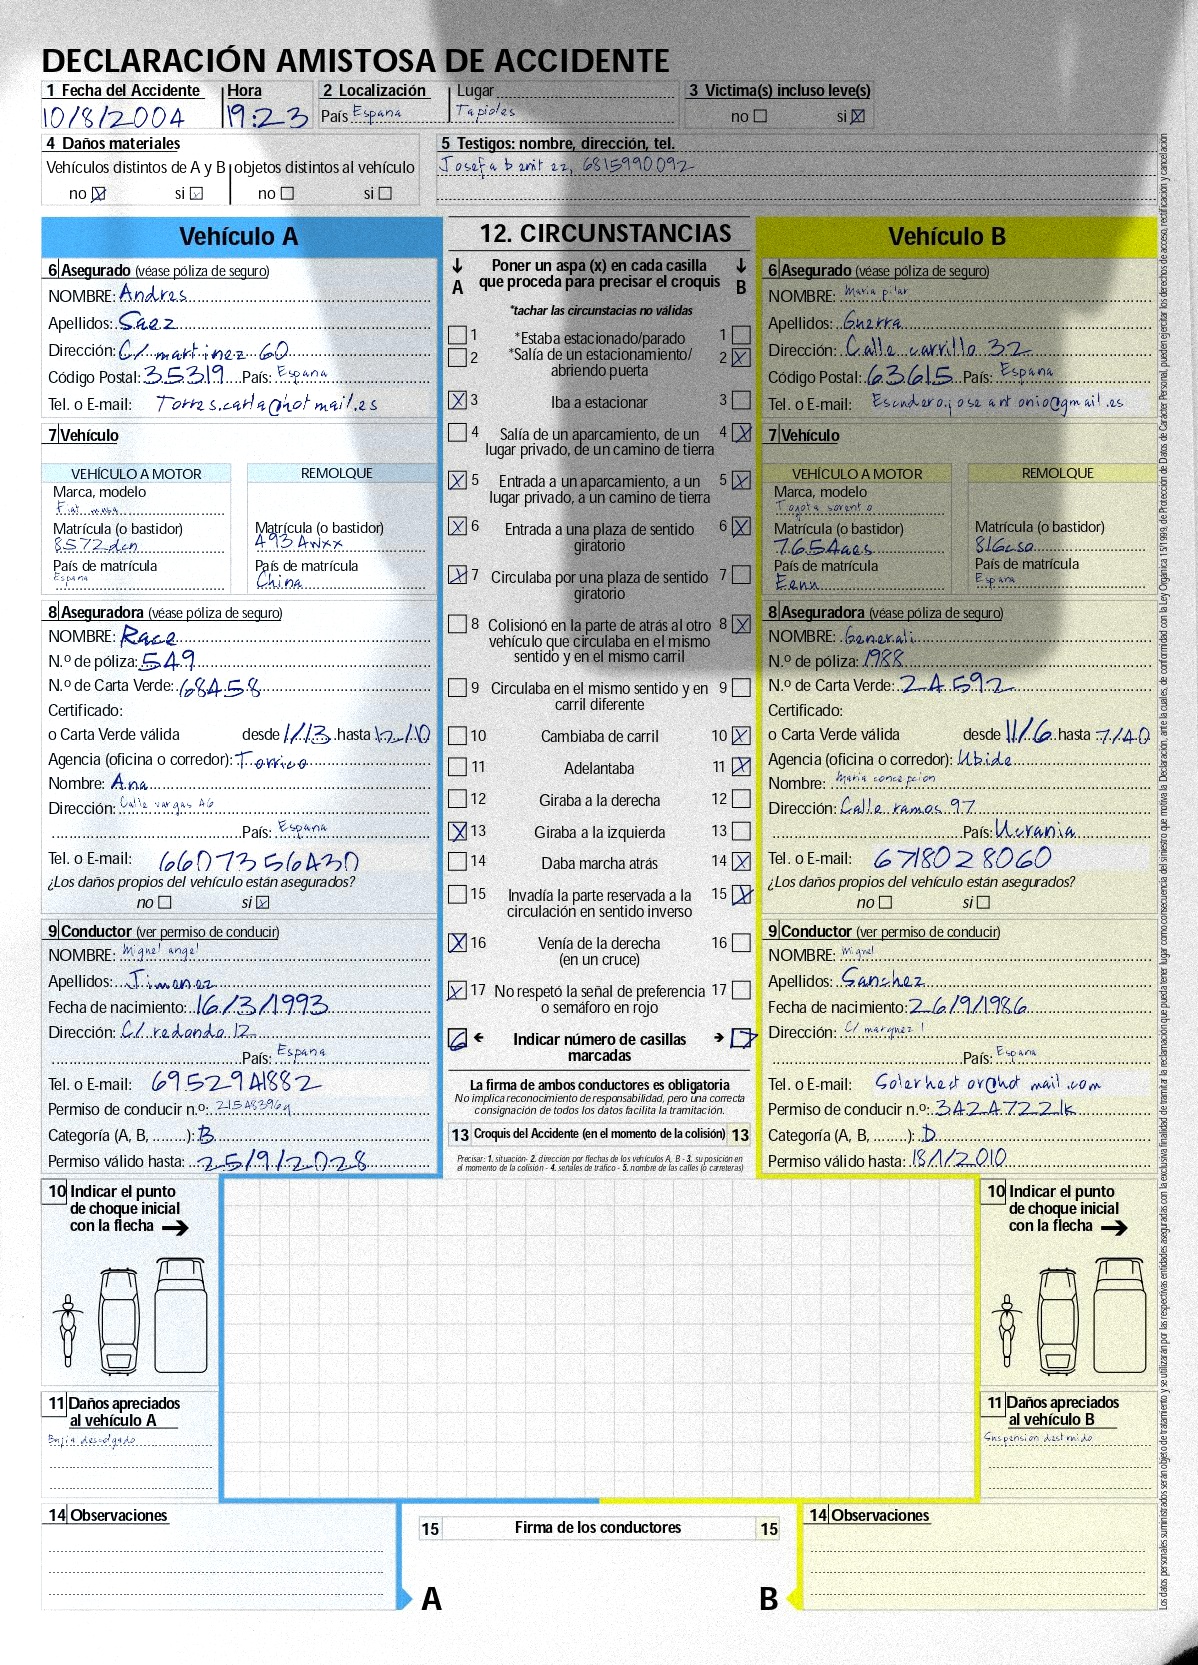 DECLARACIÓN AMISTOSA DE ACCIDENTE
1 Fecha del Accidente Hora 2 Localización Lugar 3 Victima(s) incluso leve(s)
10/8/2004 19:23 País España Tapioles no si
4 Daños materiales 5 Testigos: nombre, dirección, tel.
Vehículos distintos de A y B objetos distintos al vehículo Josefa benitez, 6815990092
no si no si
Vehículo A
6 Asegurado (véase póliza de seguro)
NOMBRE: Andres
Apellidos: Saez
Dirección: C/ martinez 60
Código Postal: 35319 País: España
Tel. o E-mail: Torres.carla@hotmail.es
7 Vehículo
VEHÍCULO A MOTOR REMOLQUE
Marca, modelo
Fiat musa
Matrícula (o bastidor) Matrícula (o bastidor)
8572dcn 493Awxx
País de matrícula País de matrícula
España China
8 Aseguradora (véase póliza de seguro)
NOMBRE: Race
N.º de póliza: 549
N.º de Carta Verde: 68458
Certificado:
o Carta Verde válida desde 1/13 hasta 12/10
Agencia (oficina o corredor): Torrico
Nombre: Ana
Dirección: Calle vargas 46
País: España
Tel. o E-mail: 6607356430
¿Los daños propios del vehículo están asegurados?
no si
9 Conductor (ver permiso de conducir)
NOMBRE: Miguel angel
Apellidos: Jimenez
Fecha de nacimiento: 16/3/1993
Dirección: C/ redondo 12
País: España
Tel. o E-mail: 6952941882
Permiso de conducir n.º: 21548396q
Categoría (A, B, ........): B
Permiso válido hasta: 25/9/2028
12. CIRCUNSTANCIAS
A Poner un aspa (x) en cada casilla que proceda para precisar el croquis B
*tachar las circunstacias no válidas
1 *Estaba estacionado/parado 1
2 *Salía de un estacionamiento/ 2
abriendo puerta
3 Iba a estacionar 3
4 Salía de un aparcamiento, de un 4
lugar privado, de un camino de tierra
5 Entrada a un aparcamiento, a un 5
lugar privado, a un camino de tierra
6 Entrada a una plaza de sentido 6
giratorio
7 Circulaba por una plaza de sentido 7
giratorio
8 Colisionó en la parte de atrás al otro 8
vehículo que circulaba en el mismo
sentido y en el mismo carril
9 Circulaba en el mismo sentido y en 9
carril diferente
10 Cambiaba de carril 10
11 Adelantaba 11
12 Giraba a la derecha 12
13 Giraba a la izquierda 13
14 Daba marcha atrás 14
15 Invadía la parte reservada a la 15
circulación en sentido inverso
16 Venía de la derecha 16
(en un cruce)
17 No respetó la señal de preferencia 17
o semáforo en rojo
6 Indicar número de casillas 7
marcadas
La firma de ambos conductores es obligatoria
No implica reconocimiento de responsabilidad, pero una correcta
consignación de todos los datos facilita la tramitación.
13 Croquis del Accidente (en el momento de la colisión) 13
Precisar: 1. situación- 2. dirección por flechas de los vehículos A, B - 3. su posición en
el momento de la colisión - 4. señales de tráfico - 5. nombre de las calles (o carreteras)
Vehículo B
6 Asegurado (véase póliza de seguro)
NOMBRE: Maria pilar
Apellidos: Guerra
Dirección: Calle carrillo 32
Código Postal: 63615 País: España
Tel. o E-mail: Escudero.jose antonio@gmail.es
7 Vehículo
VEHÍCULO A MOTOR REMOLQUE
Marca, modelo
Toyota sorento
Matrícula (o bastidor) Matrícula (o bastidor)
7654aes 816cso
País de matrícula País de matrícula
Eenn España
8 Aseguradora (véase póliza de seguro)
NOMBRE: Generali
N.º de póliza: 1988
N.º de Carta Verde: 24592
Certificado:
o Carta Verde válida desde 11/6 hasta 7/40
Agencia (oficina o corredor): Ubide
Nombre: Maria concepcion
Dirección: Calle ramos 97
País: Ucrania
Tel. o E-mail: 6718028060
¿Los daños propios del vehículo están asegurados?
no si
9 Conductor (ver permiso de conducir)
NOMBRE: Miguel
Apellidos: Sanchez
Fecha de nacimiento: 26/9/1986
Dirección: C/ marquez 1
País: España
Tel. o E-mail: Solerhector@hotmail.com
Permiso de conducir n.º: 34247221k
Categoría (A, B, ........): D
Permiso válido hasta: 18/1/2010
10 Indicar el punto
de choque inicial
con la flecha
11 Daños apreciados
al vehículo A
Bujia descolgado
10 Indicar el punto
de choque inicial
con la flecha
11 Daños apreciados
al vehículo B
Suspension destruido
14 Observaciones
15 Firma de los conductores 15
14 Observaciones
A B
Los datos personales suministrados serán objeto de tratamiento y se utilizarán por las respectivas entidades aseguradas con la exclusiva finalidad de tramitar la reclamación que pueda tener lugar como consecuencia del siniestro que motiva la Declaración, ante la cuales, de conformidad con la Ley Orgánica 15/1999, de Protección de Datos de Carácter Personal, pueden ejercitar los derechos de acceso, rectificación y cancelación